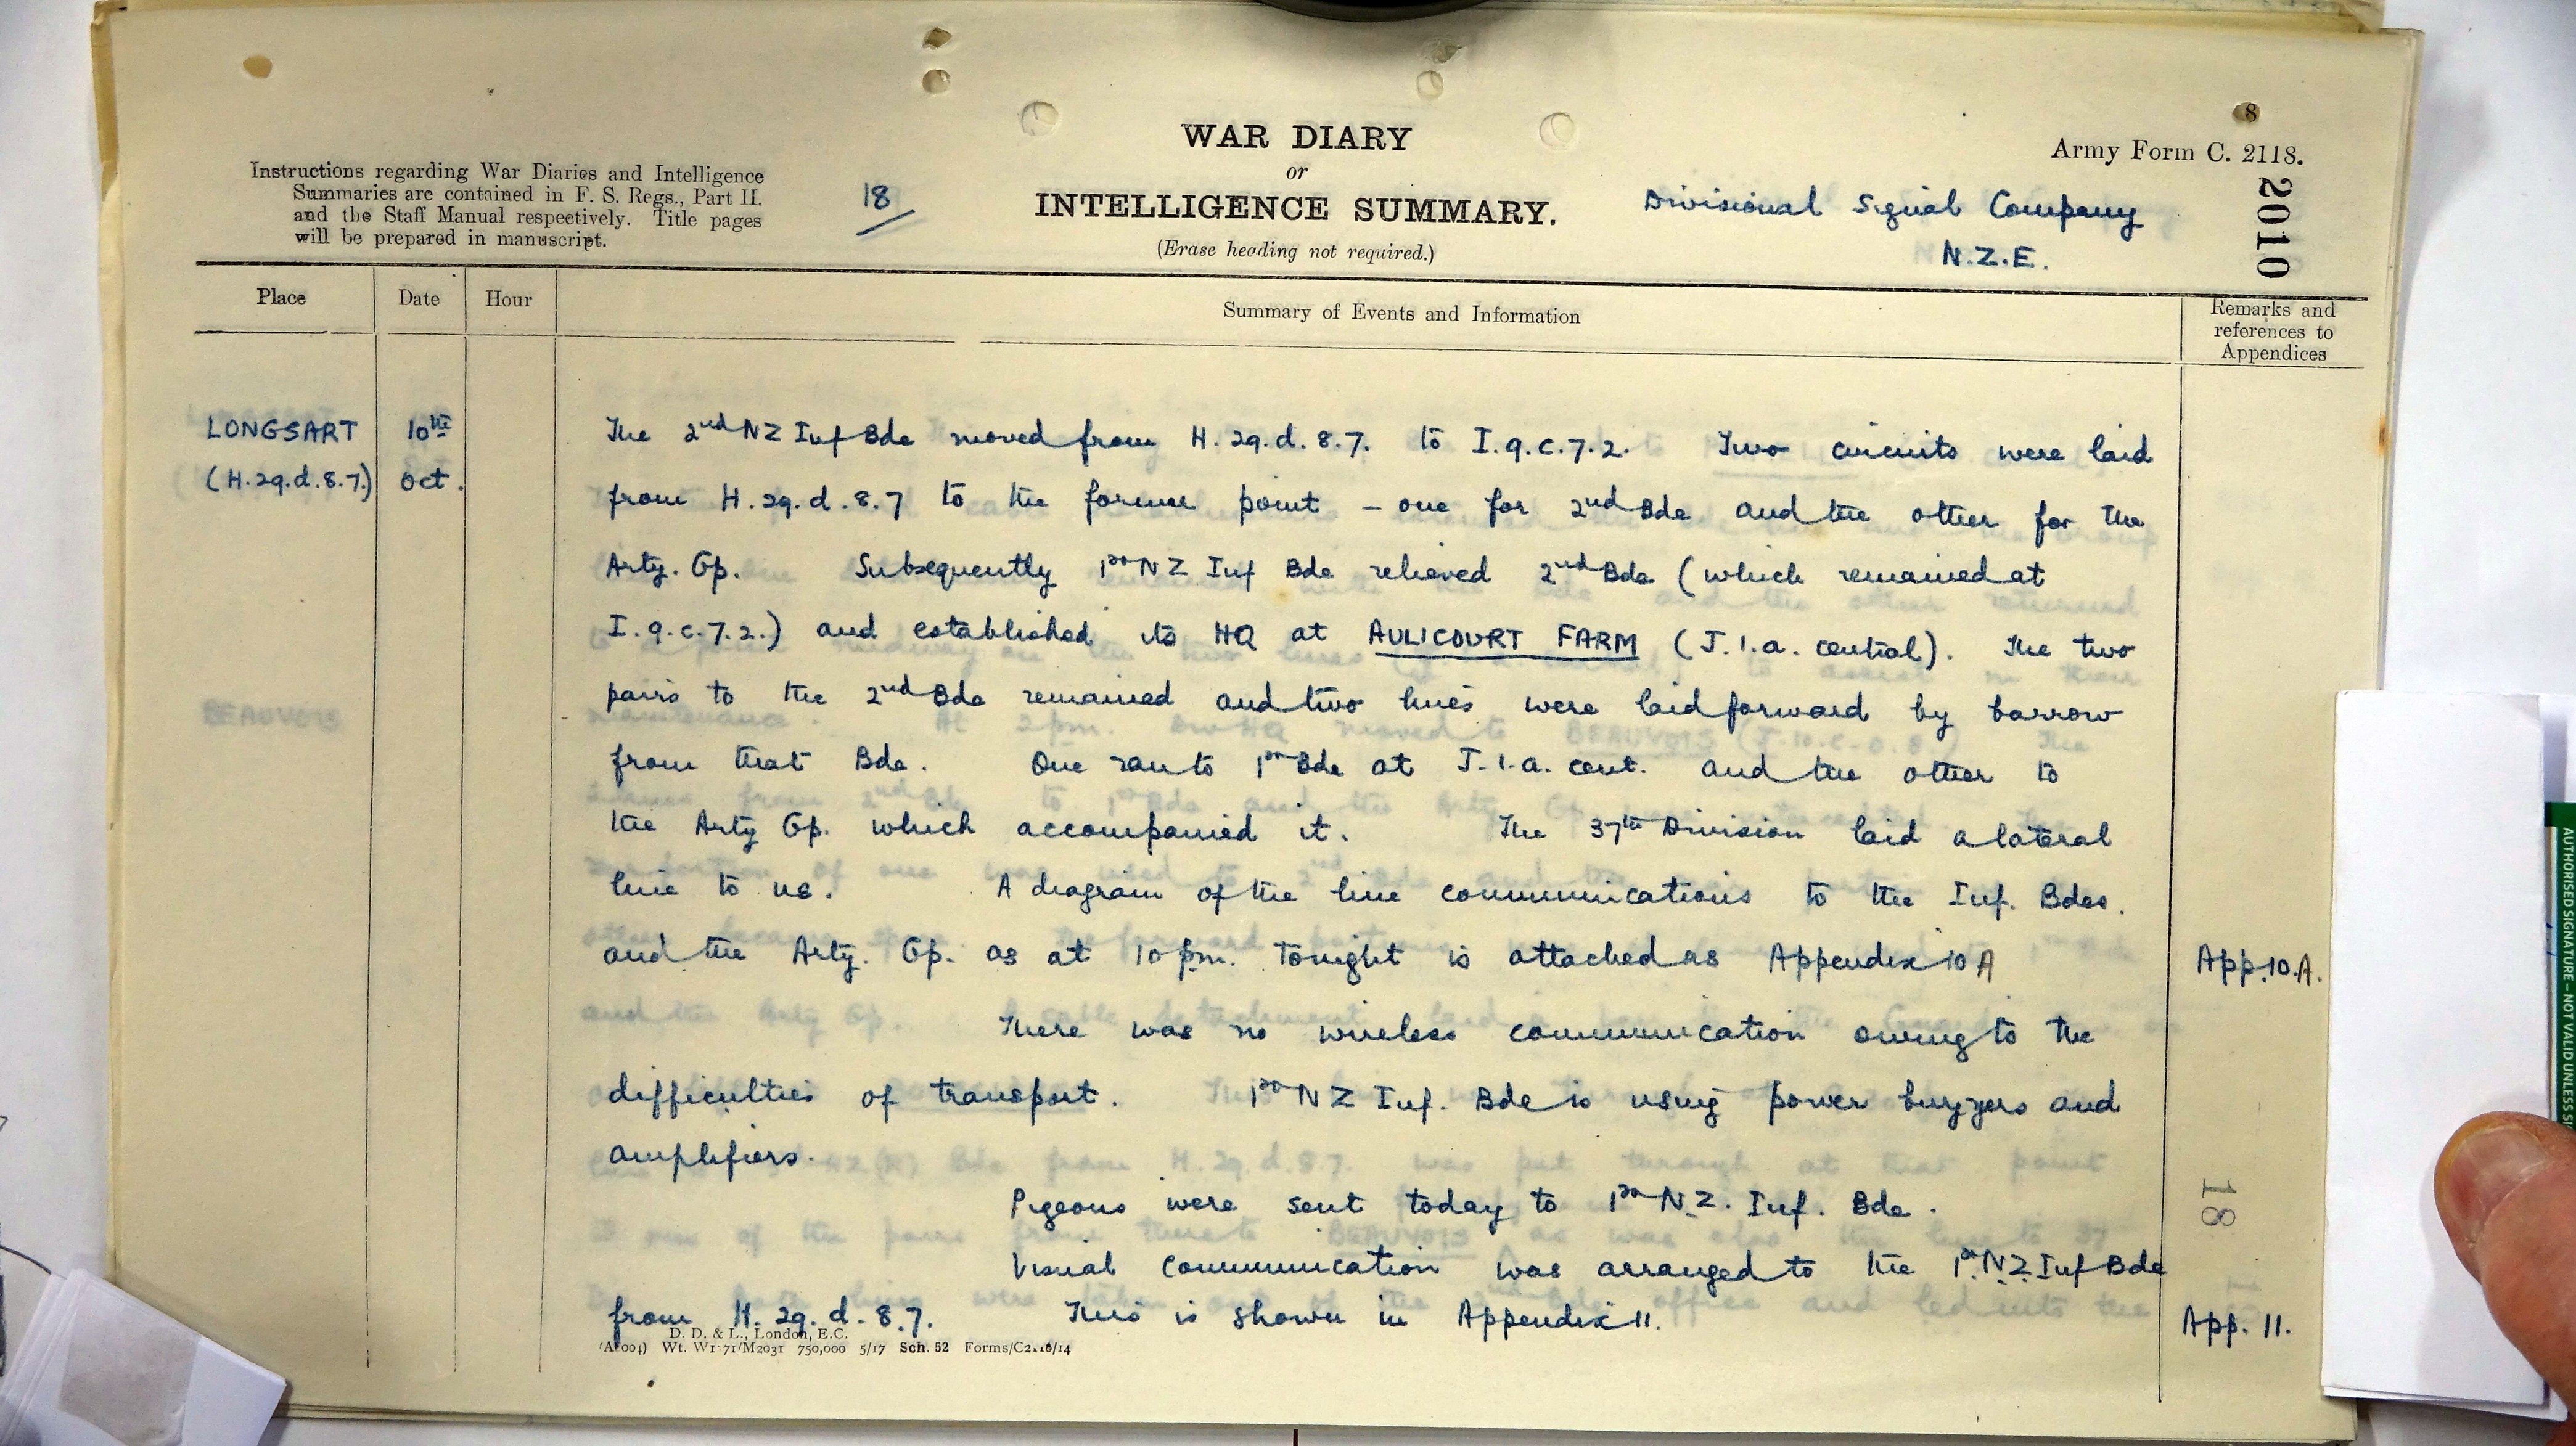 8
WAR DIARY
or
INTELLIGENCE SUMMARY.
(Erase heading not required.)
Army Form C. 2118.
Instructions regarding War Diaries and Intelligence
Summaries are contained in F. S. Regs., Part II.
and the Staff Manual respectively. Title pages
will be prepared in manuscript.
18
Divisional Signal Company
N.Z.E.
2010
Place
Date
Hour
Summary of Events and Information
Remarks and
references to
Appendices
LONGSART
(H.29.d.8.7.)
10th
Oct.
The 2nd NZ Inf Bde moved from H.29.d.8.7. to I.9.c.7.2. Two circuits were laid
from H.29.d.8.7 to the former point - one for 2nd Bde and the other for the
Arty. Gp. Subsequently 1st NZ Inf Bde relieved 2nd Bde (which remained at
I.9.c.7.2.) and established its HQ at AULICOURT FARM (J.1.a. central). The two
pairs to the 2nd Bde remained and two lines were laid forward by barrow
from that Bde. One ran to 1st Bde at J.1.a. cent. and the other to
the Arty Gp. which accompanied it. The 37th Division laid a lateral
line to us. A diagram of the line communications to the Inf. Bdes.
and the Arty. Gp. as at 10 pm. tonight is attached as Appendix 10 A
App. 10.A.
There was no wireless communication owing to the
difficulties of transport. 1st NZ Inf. Bde is using power buzzers and
amplifiers.
Pigeons were sent today to 1st N.Z. Inf. Bde.
Visual communication was arranged to the 1st N.Z. Inf Bde
from H.29.d.8.7. This is shown in Appendix 11.
App. 11.
18
D. D. & L., London, E.C.
Wt. W1771/M2031 750,000 5/17 Sch. 52 Forms/C2118/14
AUTHORISED SIGNATURE – NOT VALID UNLESS